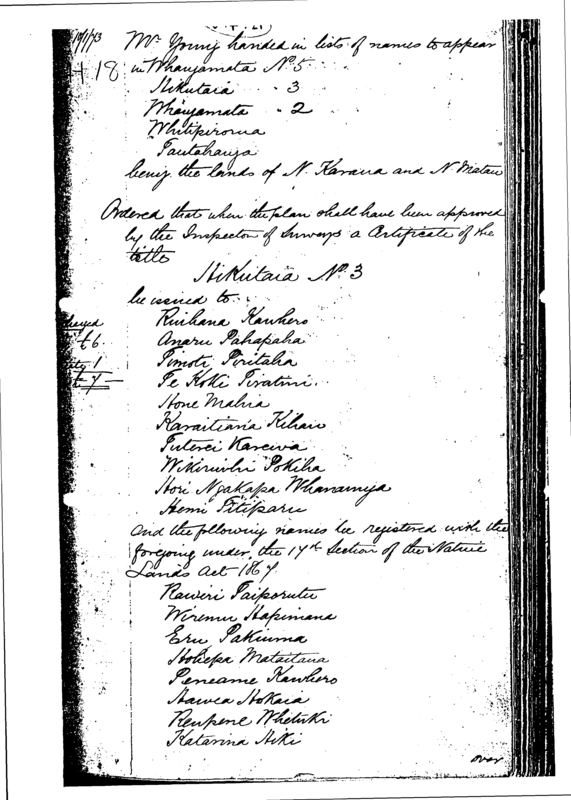 Mr Young handed in lists of names to appear
in Whangamata No 5
Hikutaia " 3
Whangamata " 2
Whitipirorua
Tautahanga
being the lands of N. Karaua and N. Matau
Ordered that when the plan shall have been approved
by the Inspector of Surveys a Certificate of the
title
Hikutaia No 3
be issued to
Ruihana Kawhero
Anaru Pahapaha
Timoti Piritaha
Te Koki Tiratini
Hone Mahia
Karaitiana Kihau
Tuterei Kareiwa
Wikiriwhi Pokiha
Hori Ngakapa Whanaunga
Hemi Titiparu
And the following names be registered with the
foregoing under the 17th Section of the Native
Lands Act 1867
Rawiri Taiporutu
Wiremu Hapimana
Eru Pakiuma
Hohepa Mataitaua
Peneame Kawhero
Hawea Hokaia
Reupene Whetuki
Katarina Hiki
over